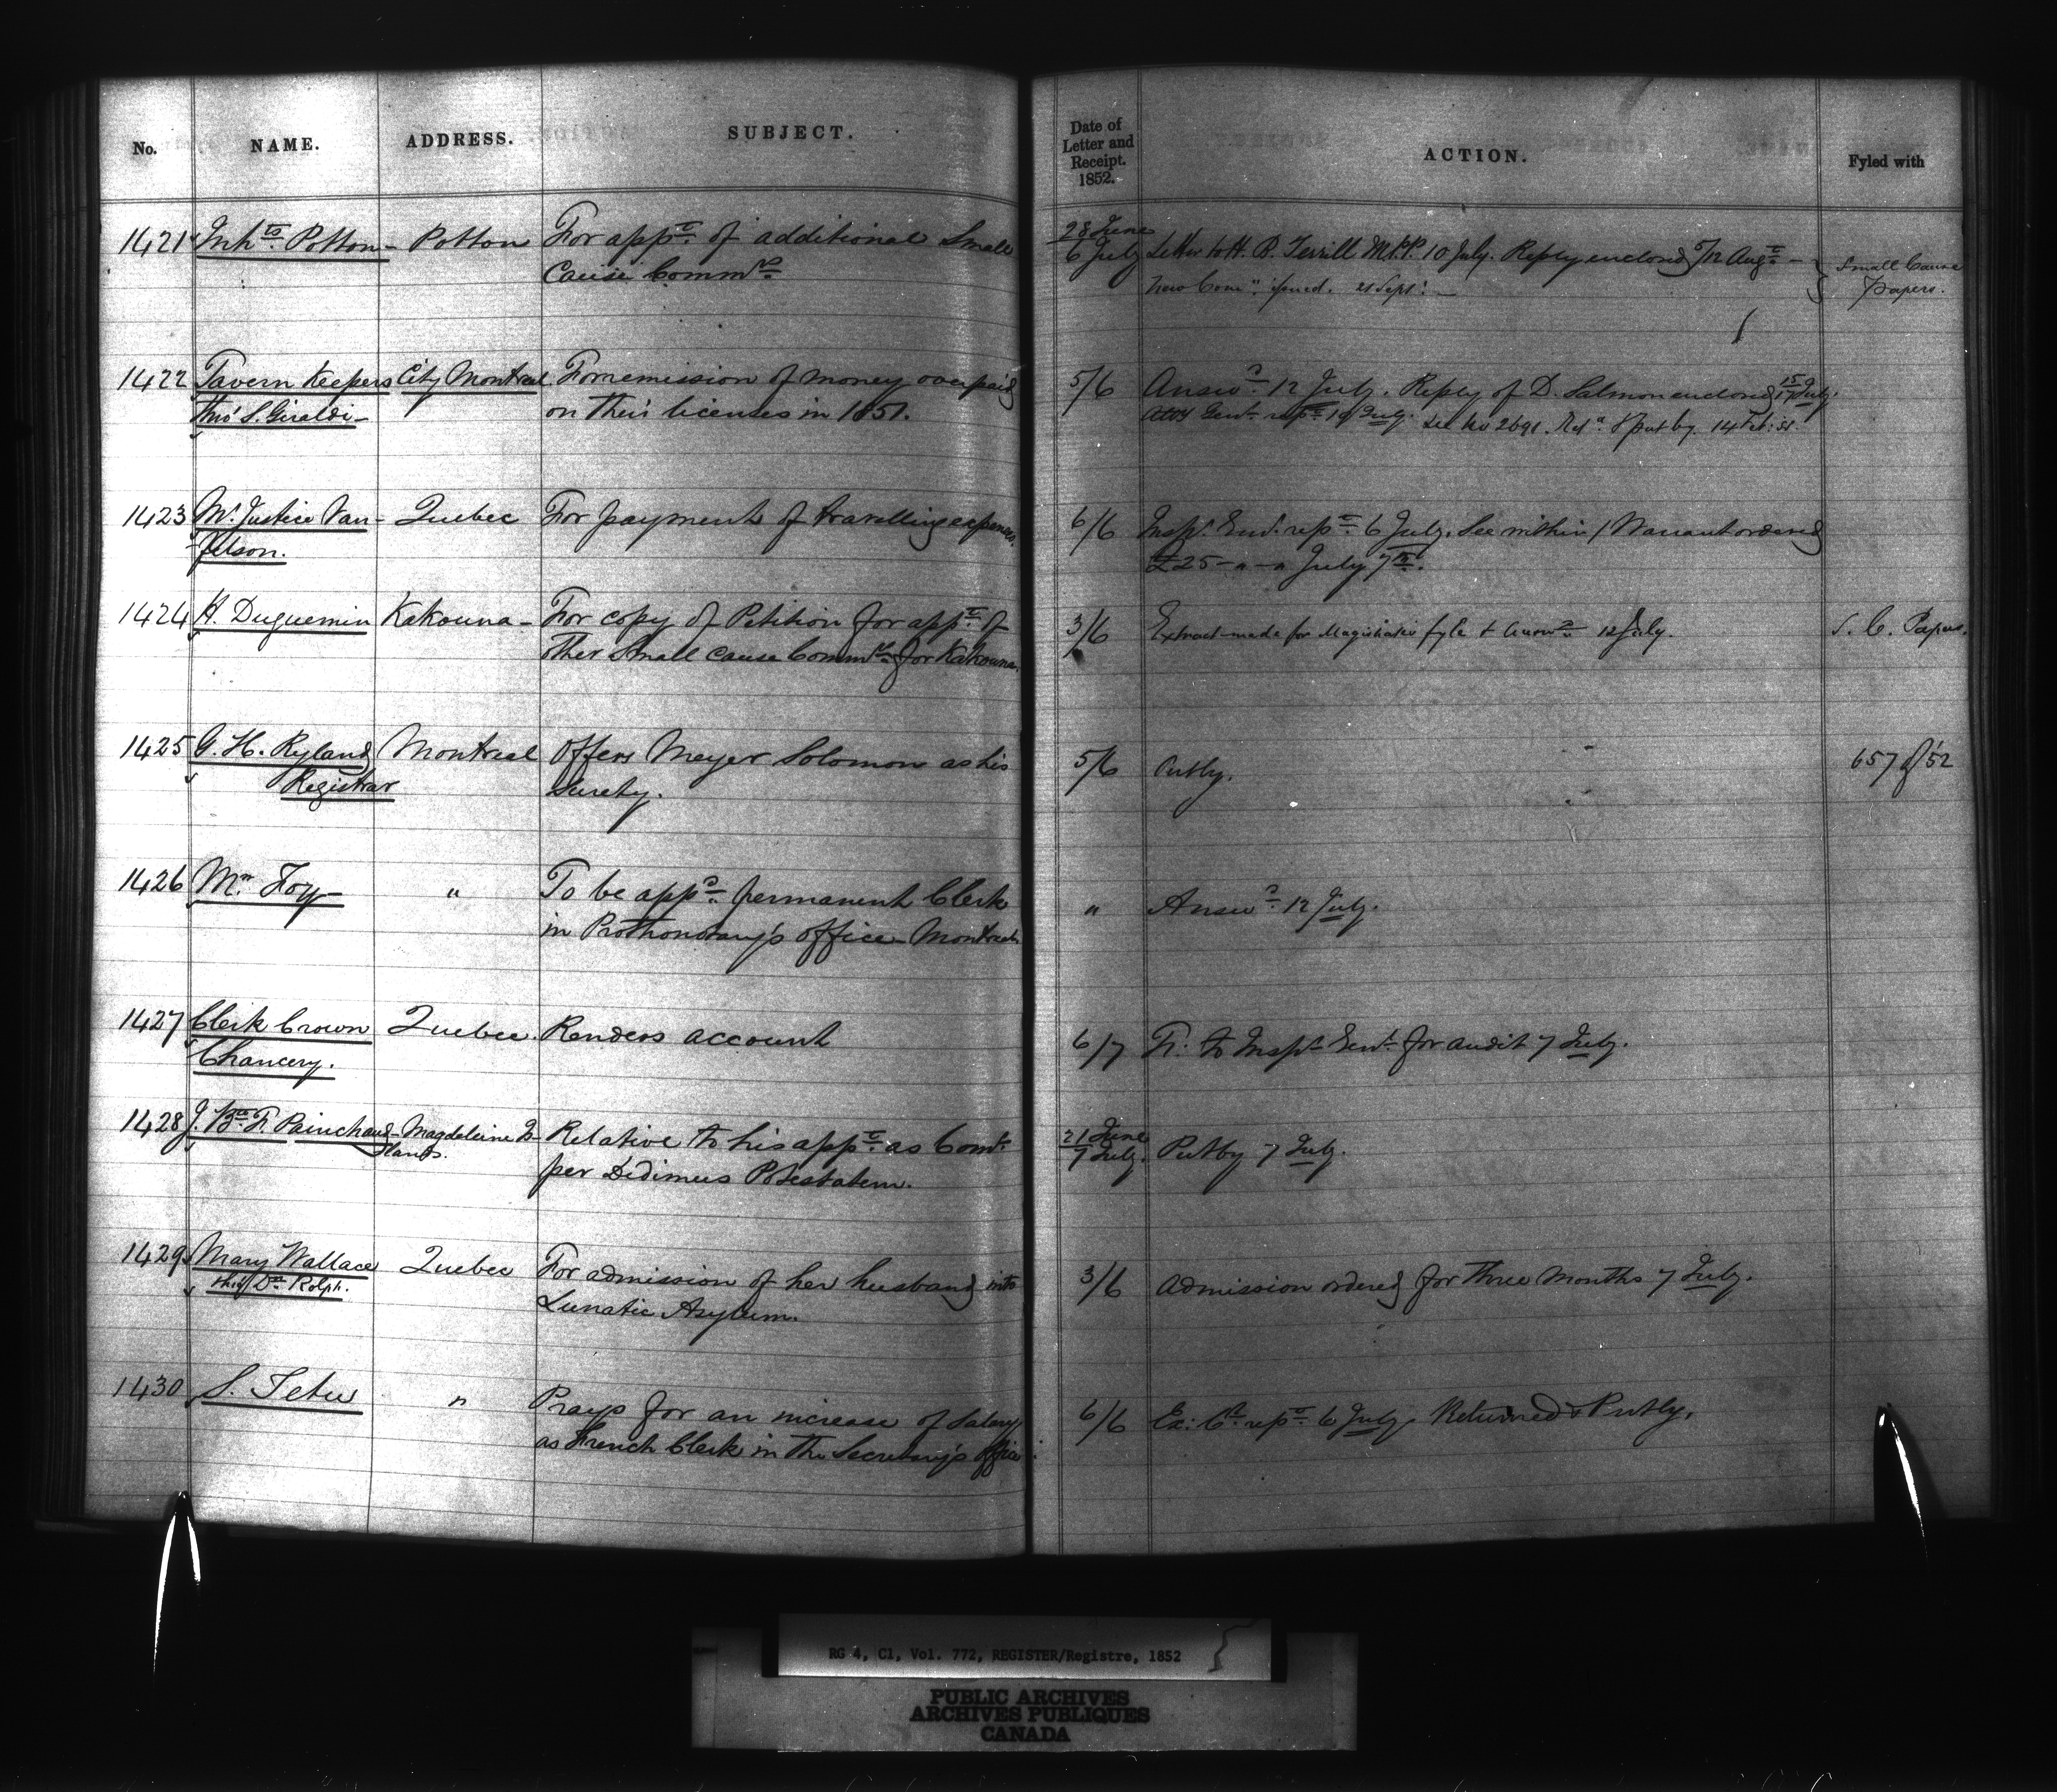 No. NAME. ADDRESS. SUBJECT. Date of Letter and Receipt. 1852. ACTION. Fyled with
1421 Inhts Potton - Potton For appt. of additional Small 28 June
Cause Commrs 6 July Letter to H. B. Terrill M.P.P. 10 July. Reply enclosed 5/12 Augt - Small Cause
New Comn. issued. 21 Sept. - Papers.
1422 Tavern Keepers City Montreal For remission of money overpaid 5/6 Answd. 12 July. Reply of D. Salmon enclosed 15/17 July.
thro' S. Giraldi - on their licenses in 1851. Atty Genl. rept. 19 July. See No 2691. Retd. & put by. 14
1423 Mr. Justice Van- Quebec For payment of travelling expenses. 6/6 Inspr. Genl. rept. 6 July. See within / Warrant ordered
felson. £25 - " - " July 7th.
1424 H. Duguemin Kakouna - For copy of Petition for appt. of 3/6 Extract made for Magistrates fyle & answd. 12 July. S. C. Papers.
other Small Cause Commrs. for Kakouna.
1425 G. H. Ryland Montreal Offers Meyer Solomon as his 5/6 Putby. 657 of '52
Registrar Surety.
1426 Mr. Foy " To be appd. permanent Clerk " Answd. 12 July.
in Prothonotary's office Montreal
1427 Clerk Crown Quebec. Renders account 6/7 Fr. to Inspr. Genl. for audit 7 July.
Chancery.
1428 J. Bte. F. Painchaud - Magdeleine Is- Relative to his appt. as Comr. 21 June
lands. per Dedimus Potestatem. 7 July. Putby 7 July.
1429 Mary Wallace Quebec For admission of her husband into 3/6 Admission ordered for three months 7 July.
thro' Dr. Rolph. Lunatic Asylum.
1430 S. Tetu " Prays for an increase of salary 6/6 Ex: Cl. rept. 6 July. Returned & Putby.
as French Clerk in the Secretary's Office
RG 4, C1, Vol. 772, REGISTER/Registre, 1852
PUBLIC ARCHIVES
ARCHIVES PUBLIQUES
CANADA